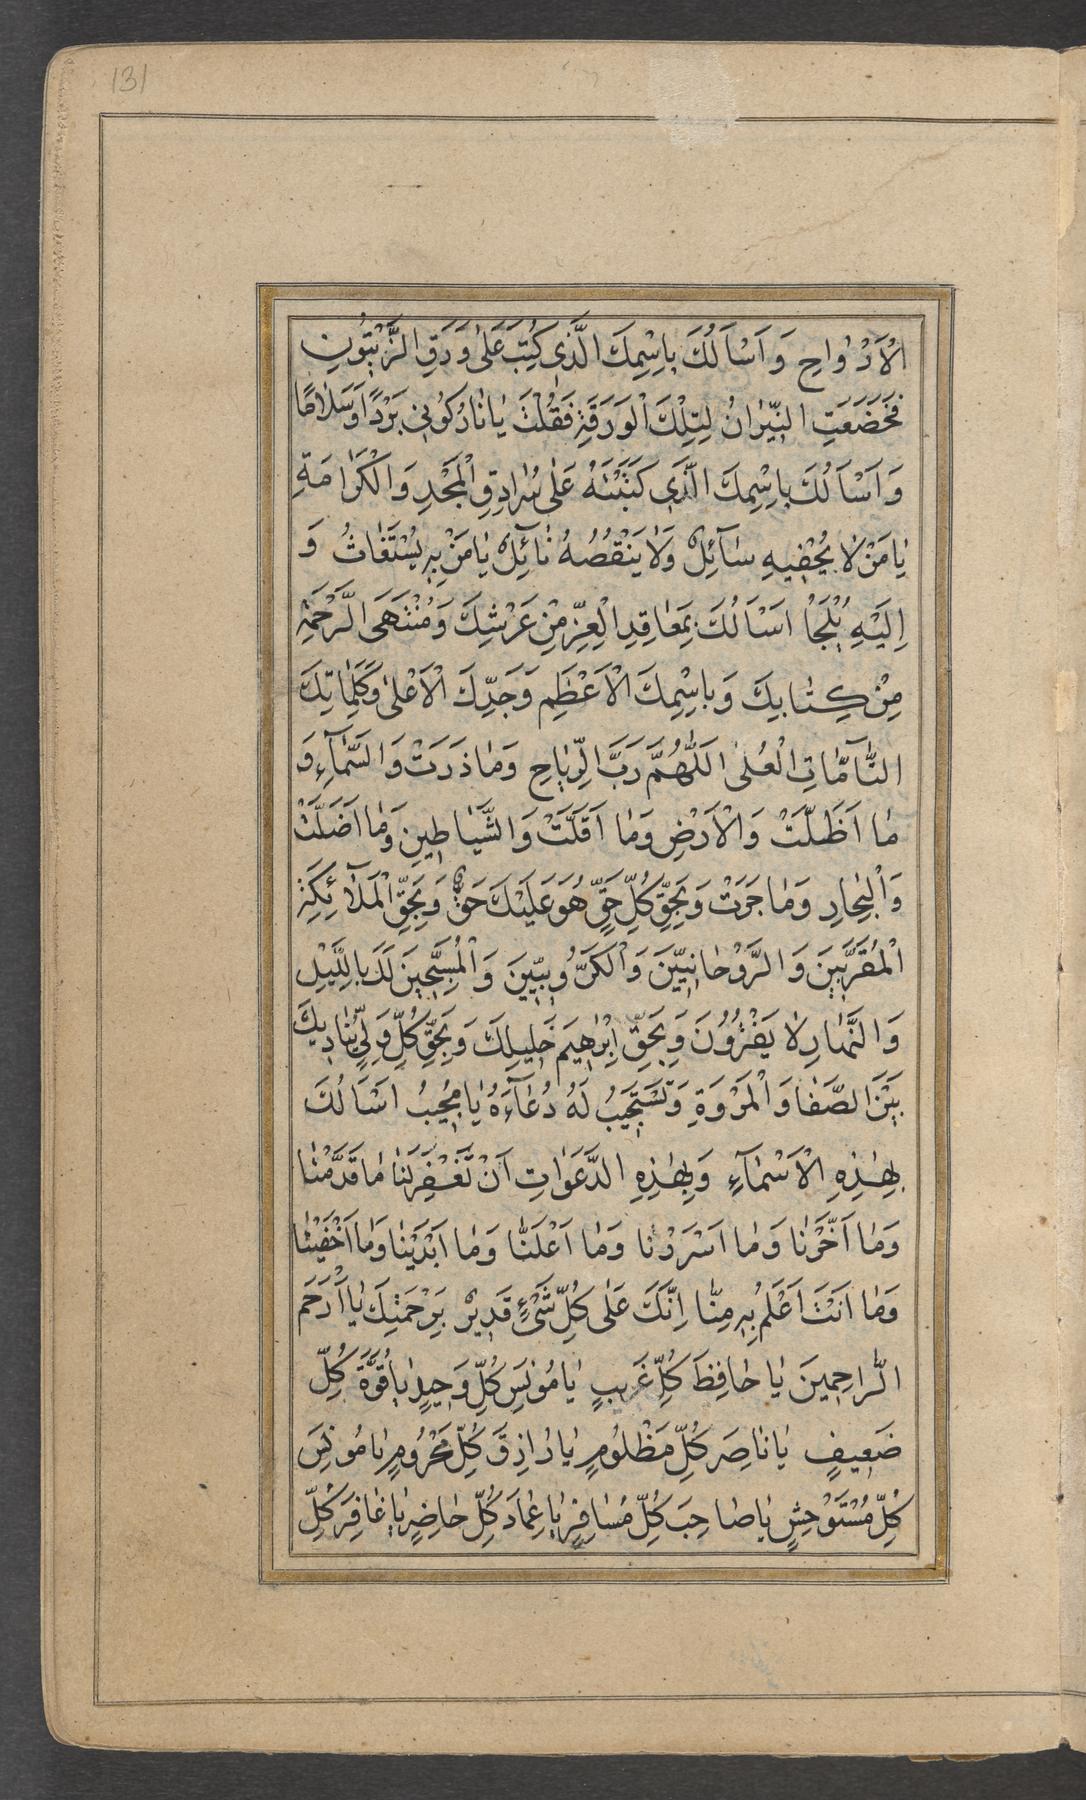 131
الْاَرْوٰاحِ وَ اَسْاَلُكَ بِاسْمِكَ الَّذٖى كُتِبَ عَلٰى وَرَقِ الزَّيْتُونِ
فَخَضَعَتِ النّٖيرٰانُ لِتِلْكَ الْوَرَقَةِ فَقُلْتَ يٰا نٰارُ كُونٖى بَرْدًا وَسَلٰامًا
وَ اَسْاَلُكَ بِاسْمِكَ الَّذٖى كَتَبْتَهُ عَلٰى سُرٰادِقِ الْمَجْدِ وَ الْكَرٰامَةِ
يٰا مَنْ لٰا يُحْفٖيهِ سٰآئِلٌ وَلٰا يَنْقُصُهُ نٰآئِلٌ يٰا مَنْ بِهٖ يُسْتَغٰاثُ وَ
اِلَيْهِ يُلْجَاُ اَسْاَلُكَ بِمَعٰاقِدِ الْعِزِّ مِنْ عَرْشِكَ وَ مُنْتَهَى الرَّحْمَةِ
مِنْ كِتٰابِكَ وَ بِاسْمِكَ الْاَعْظَمِ وَ جَدِّكَ الْاَعْلٰى وَ كَلِمٰاتِكَ
التّٰآمّٰاتِ الْعُلٰى اَللّٰهُمَّ رَبَّ الرِّيٰاحِ وَمٰا ذَرَتْ وَ السَّمٰآءِ وَ
مٰا اَظَلَّتْ وَ الْاَرْضِ وَمٰا اَقَلَّتْ وَ الشَّيٰاطٖينِ وَمٰا اَضَلَّتْ
وَ الْبِحٰارِ وَمٰا جَرَتْ وَ بِحَقِّ كُلِّ حَقٍّ هُوَ عَلَيْكَ حَقٌّ وَ بِحَقِّ الْمَلٰآئِكَةِ
الْمُقَرَّبٖينَ وَ الرَّوْحٰانِيّٖينَ وَ الْكَرُّوبِيّٖينَ وَ الْمُسَبِّحٖينَ لَكَ بِاللَّيْلِ
وَ النَّهٰارِ لٰا يَفْتُرُونَ وَ بِحَقِّ اِبْرٰاهٖيمَ خَلٖيلِكَ وَ بِحَقِّ كُلِّ وَلِىٍّ يُنٰادٖيكَ
بَيْنَ الصَّفٰا وَ الْمَرْوَةِ وَ تَسْتَجٖيبُ لَهُ دُعٰآءَهُ يٰا مُجٖيبُ اَسْاَلُكَ
بِهٰذِهِ الْاَسْمٰآءِ وَ بِهٰذِهِ الدَّعَوٰاتِ اَنْ تَغْفِرَ لَنٰا مٰا قَدَّمْنٰا
وَمٰا اَخَّرْنٰا وَمٰا اَسْرَرْنٰا وَمٰا اَعْلَنّٰا وَمٰا اَبْدَيْنٰا وَمٰا اَخْفَيْنٰا
وَمٰا اَنْتَ اَعْلَمُ بِهٖ مِنّٰا اِنَّكَ عَلٰى كُلِّ شَىْءٍ قَدٖيرٌ بِرَحْمَتِكَ يٰا اَرْحَمَ
الرّٰاحِمٖينَ يٰا حٰافِظَ كُلِّ غَرٖيبٍ يٰا مُونِسَ كُلِّ وَحٖيدٍ يٰا قُوَّةَ كُلِّ
ضَعٖيفٍ يٰا نٰاصِرَ كُلِّ مَظْلُومٍ يٰا رٰازِقَ كُلِّ مَحْرُومٍ يٰا مُونِسَ
كُلِّ مُسْتَوْحِشٍ يٰا صٰاحِبَ كُلِّ مُسٰافِرٍ يٰا عِمٰادَ كُلِّ حٰاضِرٍ يٰا غٰافِرَ كُلِّ